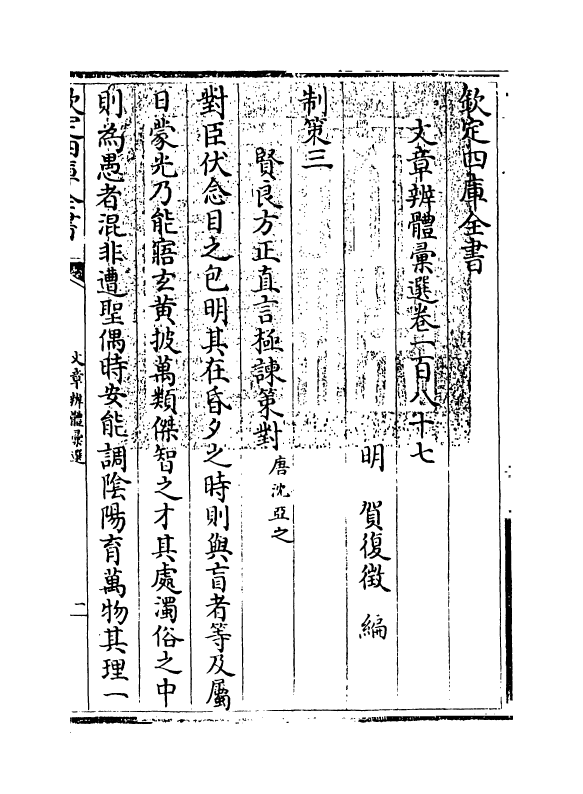 欽定四庫全書
文章辨體彙選卷一百八十七
明 賀復徵 編
制策三
賢良方正直言極諫策對 唐沈亞之
對臣伏念目之包明其在昏夕之時則與盲者等及屬
日蒙光乃能寤玄黄披萬類傑智之才其處濁俗之中
則為愚者混非遭聖偶時安能調陰陽育萬物其理一
欽定四庫全書
文章辨體彙選